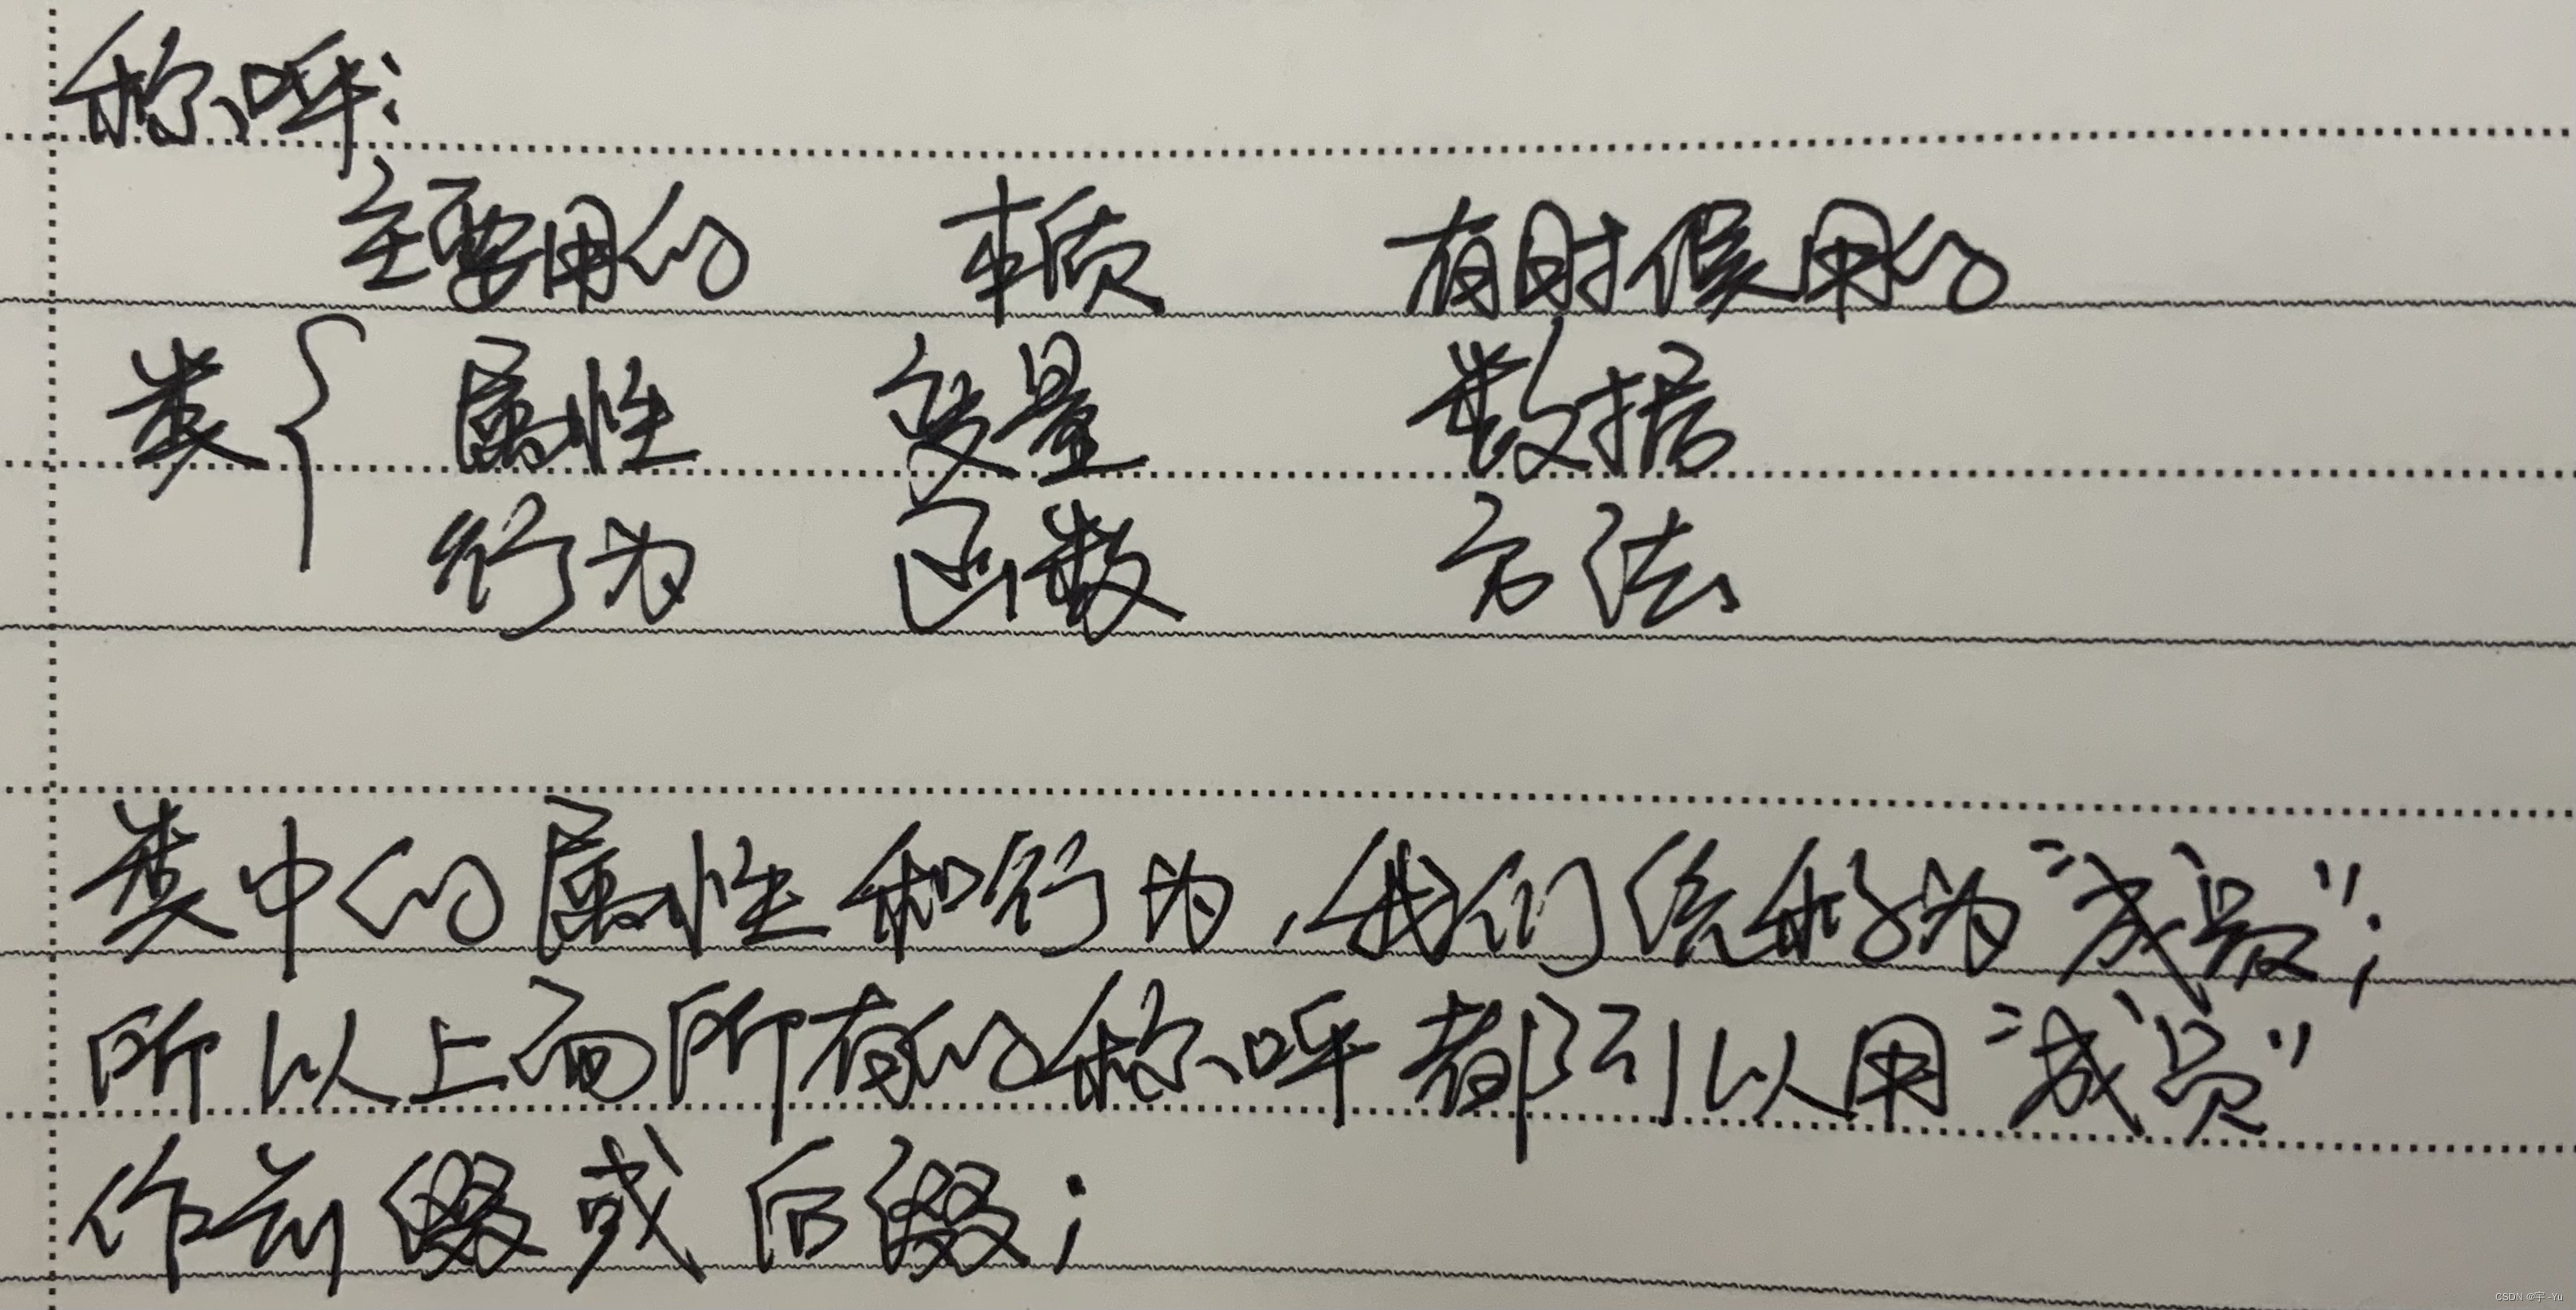 称呼:
主要用的 本质 有时候用的
类{ 属性 变量 数据
行为 函数 方法
类中的属性和行为,我们统称为"成员";
所以上面所有的称呼都可以用"成员"
作前缀或后缀;
CSDN @宇-Yu